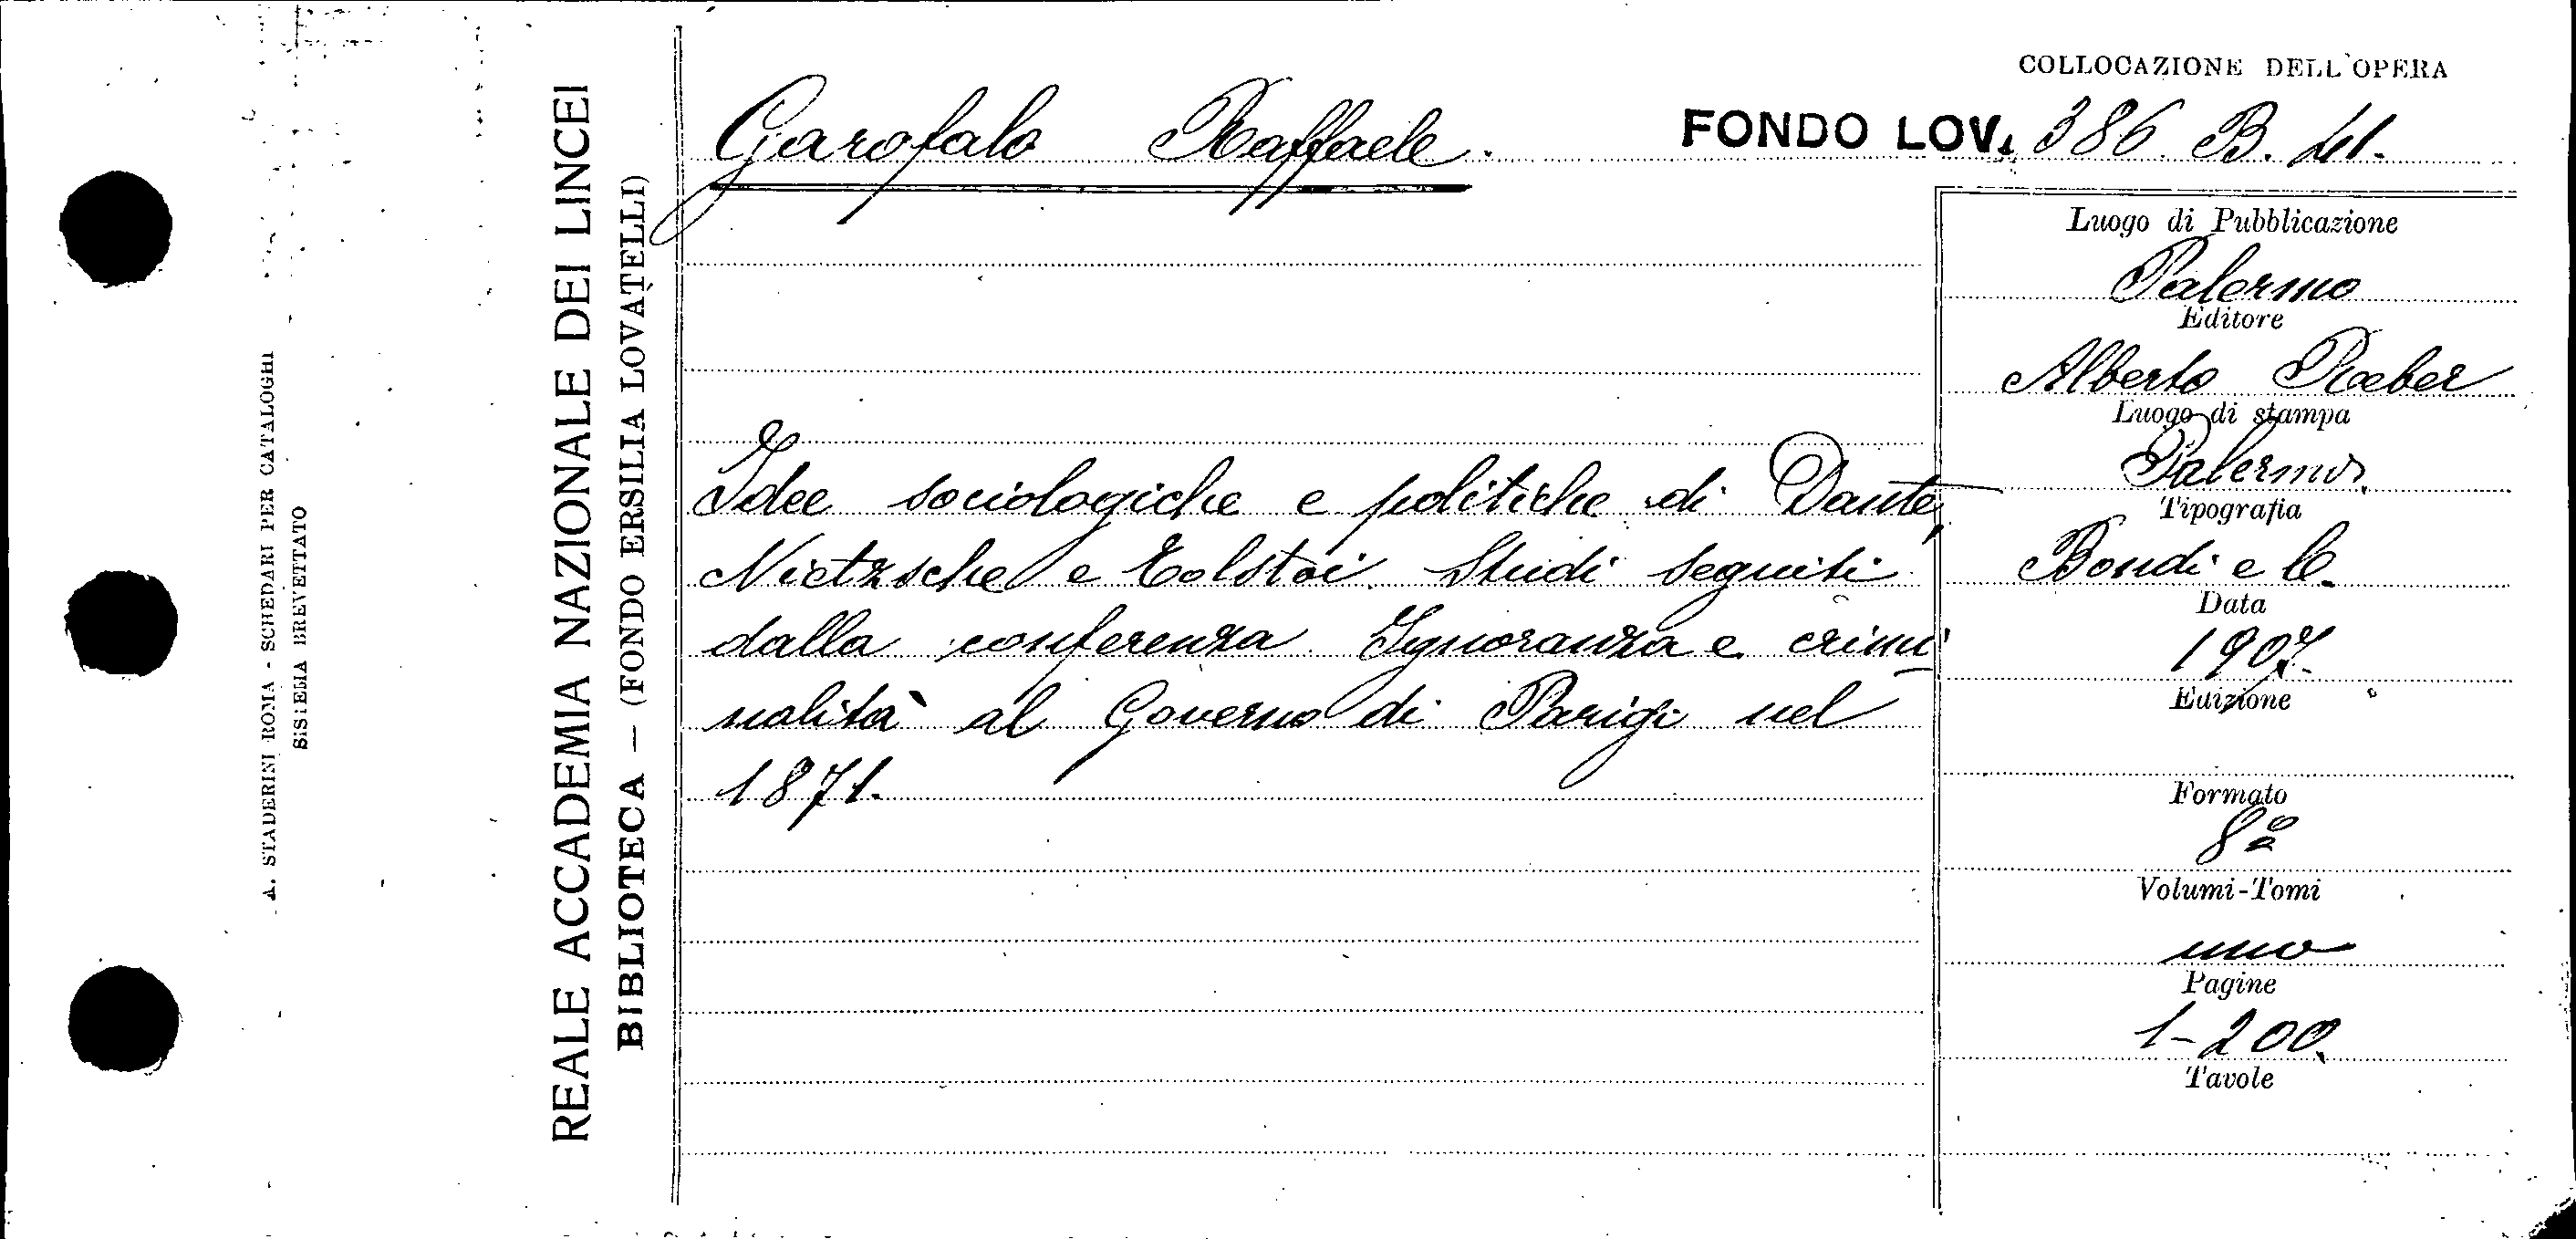 A. STADERINI ROMA - SCHEDARI PER CATALOGHI
SISTEMA BREVETTATO
REALE ACCADEMIA NAZIONALE DEI LINCEI
BIBLIOTECA — (FONDO ERSILIA LOVATELLI)
COLLOCAZIONE DELL'OPERA
Garofalo Raffaele.
FONDO LOV. 386. B. 41.
Idee sociologiche e politiche di Dante,
Nietzsche e Tolstoi. Studi seguiti
dalla conferenza Ignoranza e crimi
nalità al Governo di Parigi nel
1871.
Luogo di Pubblicazione
Palermo
Editore
Alberto Reber
Luogo di stampa
Palermo
Tipografia
Bondi e C.
Data
1907.
Edizione
Formato
8º
Volumi-Tomi
uno
Pagine
1-200.
Tavole